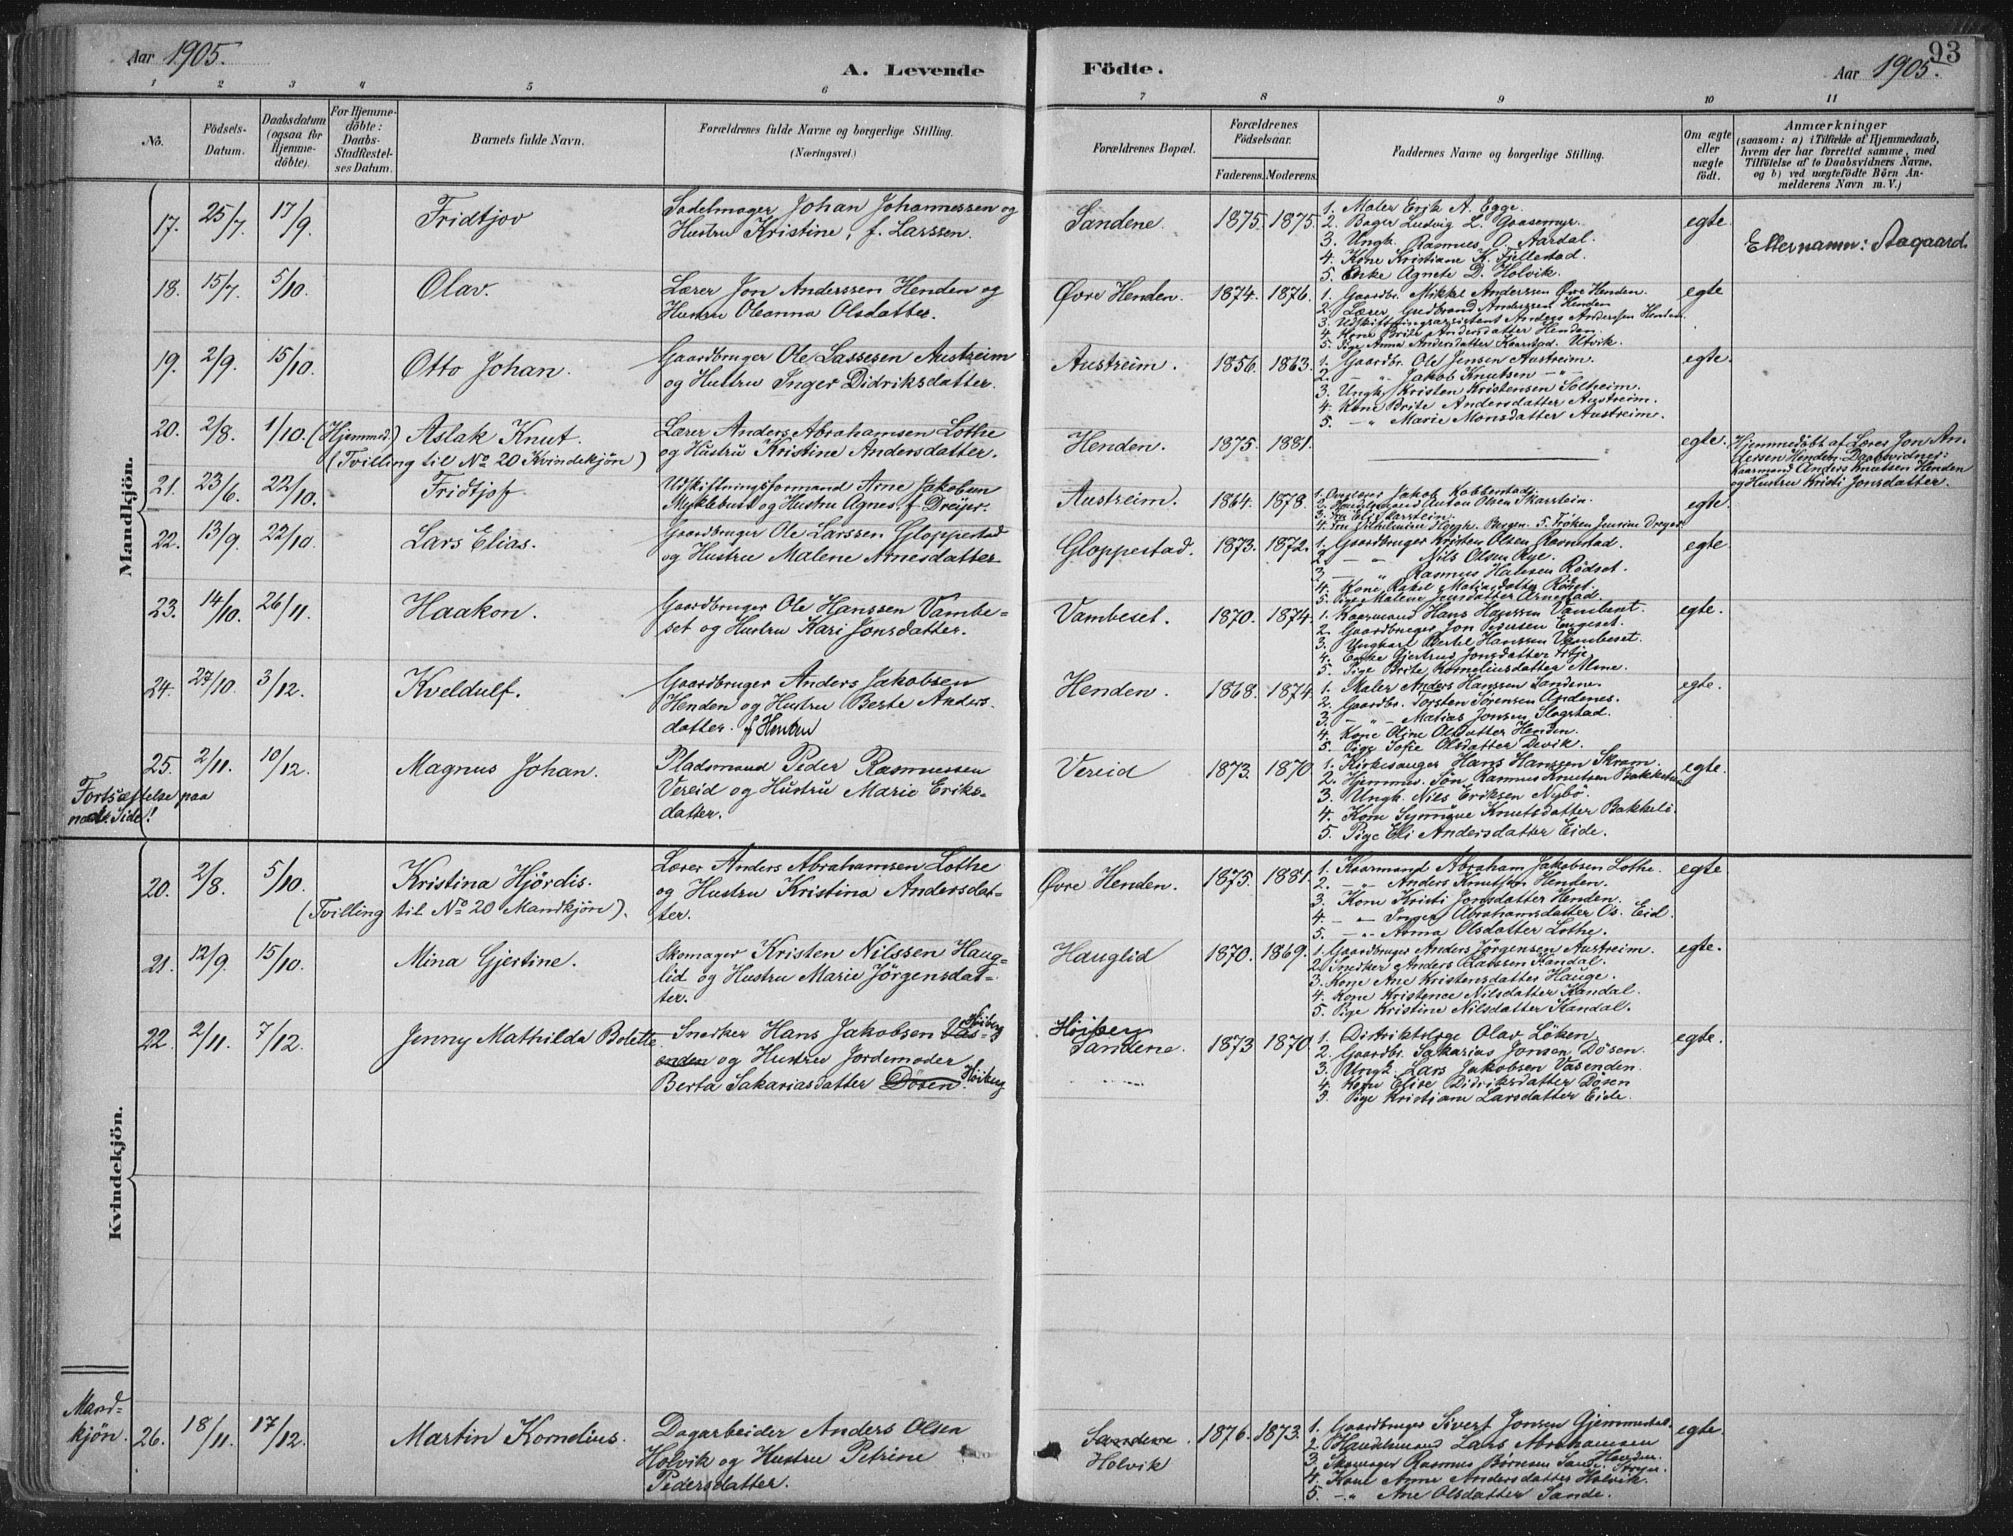 Aar 1905.
A. Levende
1 2 3 4 5 6
No.
Födsels-Datum.
Daabsdatum (ogsaa for Hjemme-döbte).
For Hjemme-döbte: Daabs-Stadfæstel-ses Datum.
Barnets fulde Navn.
Forældrenes fulde Navne og borgerlige Stilling.
(Næringsvei.)
Mandkjön.
17. 25/7. 17/9. Fridtjov
Sadelmager Johan Johannessen og
Hustru Kristine, f. Larssen.
18. 15/7. 5/10. Olav.
Lærer Jon Anderssen Henden og
Hustru Oleanna Olsdatter.
19. 2/9. 15/10. Otto Johan.
Gaardbruger Ole Lassesen Austreim
og Hustru Inger Didriksdatter.
20. 2/8. 1/10. (Hjemmed.) Aslak Knut.
(Tvilling til No 20 Kvindekjön)
Lærer Anders Abrahamsen Lothe
og Hustru Kristine Andersdatter.
21. 23/6. 22/10. Fridtjof
Udskiftningsformand Arne Jakobsen
Myklebust og Hustru Agnes, f Dreyer.
22. 13/9. 22/10. Lars Elias.
Gaardbruger Ole Larssen Gloppestad
og Hustru Malene Arnesdatter
23. 14/10. 26/11. Haakon.
Gaardbruger Ole Hanssen Vambe-
set og Hustru Kari Jonsdatter.
24. 27/10. 3/12. Kveldulf.
Gaardbruger Anders Jakobsen
Henden og Hustru Berte Anders-
datter. f Henden
25. 2/11. 10/12. Magnus Johan.
Pladsmand Peder Rasmussen
Vereid og Hustru Marie Eriks-
datter.
Fortsættelse paa
næste Side!
Kvindekjön.
20. 2/8. 5/10. Kristina Hjördis.
(Tvilling til No 20 Mandkjön).
Lærer Anders Abrahamsen Lothe
og Hustru Kristina Andersdat-
ter.
21. 12/9. 15/10. Mina Gjertine.
Skomager Kristen Nilssen Haug-
lid og Hustru Marie Jörgensdat-
ter.
22. 2/11. 7/12. Jenny Mathilda Bolette
Snedker Hans Jakobsen Vas- Höiberg
enden og Hustru Jordemoder
Berta Sakariasdatter Dösen. Höiberg
Mand-
kjön.
26. 18/11. 17/12. Martin Kornelius.
Dagarbeider Anders Olsen
Holvik og Hustru Petrine
Pedersdatter.
Födte.
93
Aar 1905.
7 8 9 10 11
Forældrenes Bopæl.
Forældrenes Födselsaar.
Faderens. Moderens.
Faddernes Navne og borgerlige Stilling.
Om ægte eller uægte födt.
Anmærkninger
(saasom: a) i Tilfælde af Hjemmedaab,
hvem der har forrettet samme, med
Tilföielse af to Daabsvidners Navne.
og b) ved uægtefödte Börn An-
melderens Navn m. V.)
Sandene. 1875. 1875.
1. Maler Erik A. Egge.
2. Bager Ludvig L. Gaasemyr.
3. Ungk. Rasmus O. Aardal.
4. Kone Kristiane K. Fjellestad.
5. Enke Agnete D. Holvik.
egte.
Etternamn: Aagaard.
Øvre Henden. 1874. 1876.
1. Gaardbr. Mikkel Anderssen Øvre Henden.
2. Lærer Gudbrand Anderssen Henden
3. Udskiftningsassistent Anders Andersen Henden.
4. Kone Brite Andersdatter Henden.
5. Pige Anna Andersdatter Kaarstad. Utvik.
egte
Austreim. 1856. 1863.
1. Gaardbr. Ole Jensen Austreim.
2. " Jakob Knutsen - " -
3. Ungk. Kristen Kristensen Solheim.
4. Kone Brite Andersdatter Austreim.
5. - " - Marie Monsdatter Austreim.
egte.
Henden. 1875. 1881.
egte.
Hjemmedöbt af Lærer Jon An-
dersen Henden. Daabsvidner:
Kaarmand Anders Knutsen Henden
og Hustru Kristi Jonsdatter.
Austreim. 1864. 1878.
2. Handelsmand Anton Olsen Skarstein.
3. Fru Eli Skarstein.
egte.
Gloppestad. 1873. 1872.
1. Gaardbruger Kristen Olsen
2. - " - Nils Olsen Rye.
3. - " - Rasmus Hansen Rödset.
4. Kone Rakel Matiasdatter Rödset.
5. Pige Malene Jensdatter Arnestad.
egte
Vambeset. 1870. 1874.
1. Kaarmand Hans Hanssen Vambeset.
2. Gaardbruger Jon Pedersen Engeset.
3. Ungkarl Bertel Hanssen Vambeset.
4. Enke Gjertrud Jonsdatter
5. Pige Brite Korneliusdatter
egte.
Henden. 1868. 1874.
1. Maler Anders Hanssen Sandene.
2. Gaardbr. Torsten Sörensen Andenes.
3. - " - Matias Jonsen Slogstad.
4. Kone Oline Olsdatter Henden.
5. Pige Sofie Olsdatter Devik.
egte.
Vereid 1873. 1870
1. Kirkesanger Hans Hanssen Skram.
2. Hjemmev. Sön Rasmus Knutsen Bakkelien
3. Ungk. Nils Eriksen Nybö.
4. Kone Synnöve Knutsdatter Bakkeli
5. Pige Eli Andersdatter Eide.
egte.
Øvre Henden. 1875. 1881.
1. Kaarmand Abraham Jakobsen Lothe.
2. - " - Anders Knutsen Henden.
3. Kone Kristi Jonsdatter Henden.
4. - " - Inger Abrahamsdatter Os. Eid.
5. - " - Anna Olsdatter Lothe.
egte
Hauglid 1870. 1869.
1. Gaardbruger Anders Jörgensen Austreim.
2. Snedker Anders Larssen Kandal.
3. Kone Ane Kristensdatter Hauge.
4. Kone Kristence Nilsdatter Kandal.
5. Pige Kristine Nilsdatter Kandal.
egte.
Höiberg
Sandene. 1873 1870
1. Distriktslæge Olav Löken
2. Gaardbr. Sakarias Jonsen Dösen.
3. Ungk. Lars Jakobsen Vasenden.
4. Kone Elise Didriksdatter Dösen
5. Pige Kristiane Larsdatter Eide.
egte.
Sandene.
Holvik 1876. 1873.
1. Gaardbruger Sivert Jonsen Gjemmestad.
2. Handelsmand Lars Abrahamsen
3. Skomager Rasmus Börnesen
4. Kone Anne Andersdatter Holvik.
5. - " - Ane Olsdatter Sande.
egte.